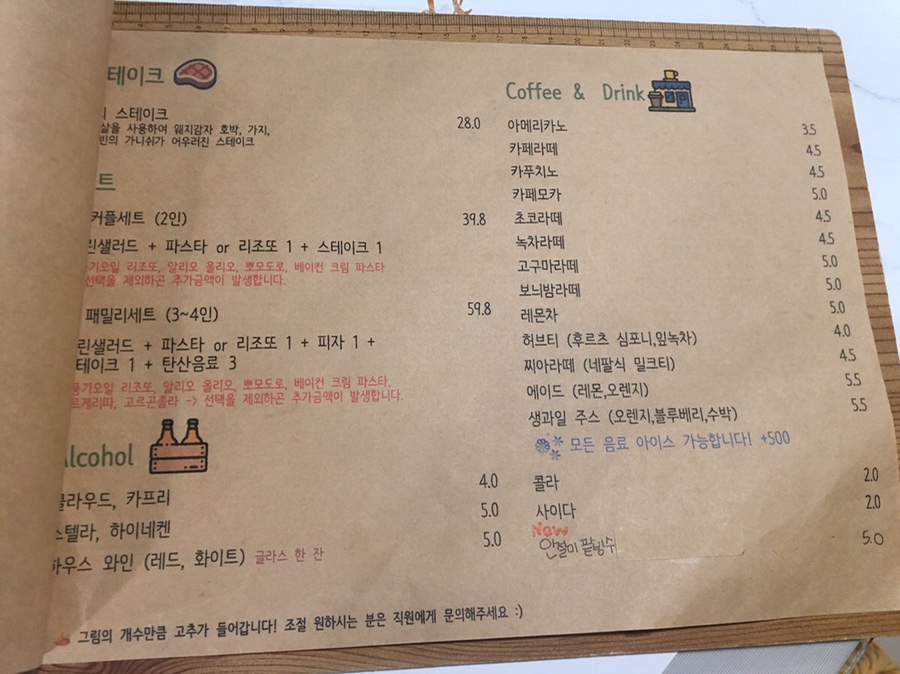 테이크
스테이크
28.0
살을 사용하여 웨지감자 호박, 가지,
빈의 가니쉬가 어우러진 스테이크
트
커플세트 (2인)
39.8
린샐러드 + 파스타 or 리조또 1 + 스테이크 1
기오일 리조또, 알리오 올리오, 뽀모도로, 베이컨 크림 파스타
선택을 제외하곤 추가금액이 발생합니다.
패밀리세트 (3~4인)
59.8
린샐러드 + 파스타 or 리조또 1 + 피자 1 +
테이크 1 + 탄산음료 3
풍기오일 리조또, 알리오 올리오, 뽀모도로, 베이컨 크림 파스타,
르게리따, 고르곤졸라 -> 선택을 제외하곤 추가금액이 발생합니다.
Alcohol
클라우드, 카프리
4.0
스텔라, 하이네켄
5.0
하우스 와인 (레드, 화이트) 글라스 한 잔
5.0
그림의 개수만큼 고추가 들어갑니다! 조절 원하시는 분은 직원에게 문의해주세요 :)
Coffee & Drink
아메리카노 3.5
카페라떼 4.5
카푸치노 4.5
카페모카 5.0
초코라떼 4.5
녹차라떼 4.5
고구마라떼 5.0
보늬밤라떼 5.0
레몬차 5.0
허브티 (후르츠 심포니,잎녹차) 4.0
찌아라떼 (네팔식 밀크티) 4.5
에이드 (레몬,오렌지) 5.5
생과일 주스 (오렌지,블루베리,수박) 5.5
모든 음료 아이스 가능합니다! +500
콜라 2.0
사이다 2.0
New
인절미 팥빙수 5.0